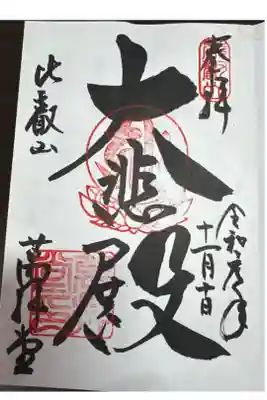 奉拝
令和 年
十一月十日
大悲殿
比叡山
萬拝堂